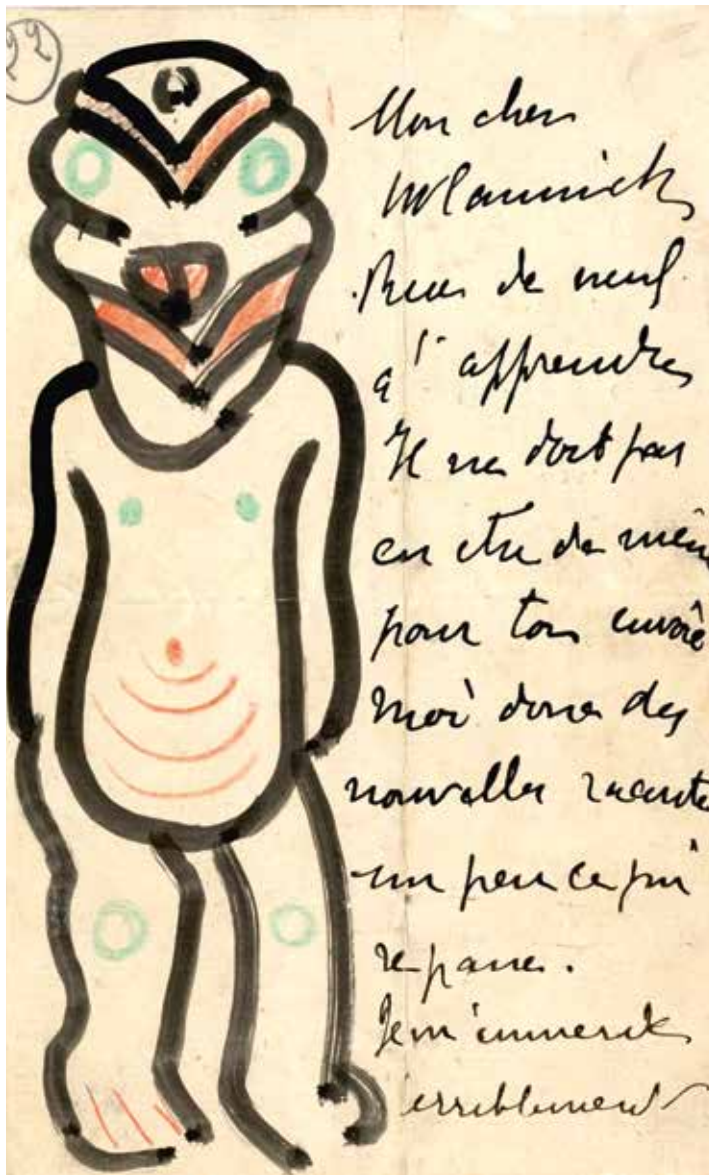 22
Mon cher
Vlaminck
Rien de neuf
à t'apprendre
Il ne doit pas
en etre de mêm
pour toi envoie
moi donc des
nouvelles raconte
un peu ce qui
se passe.
Je m'ennuie
erriblement